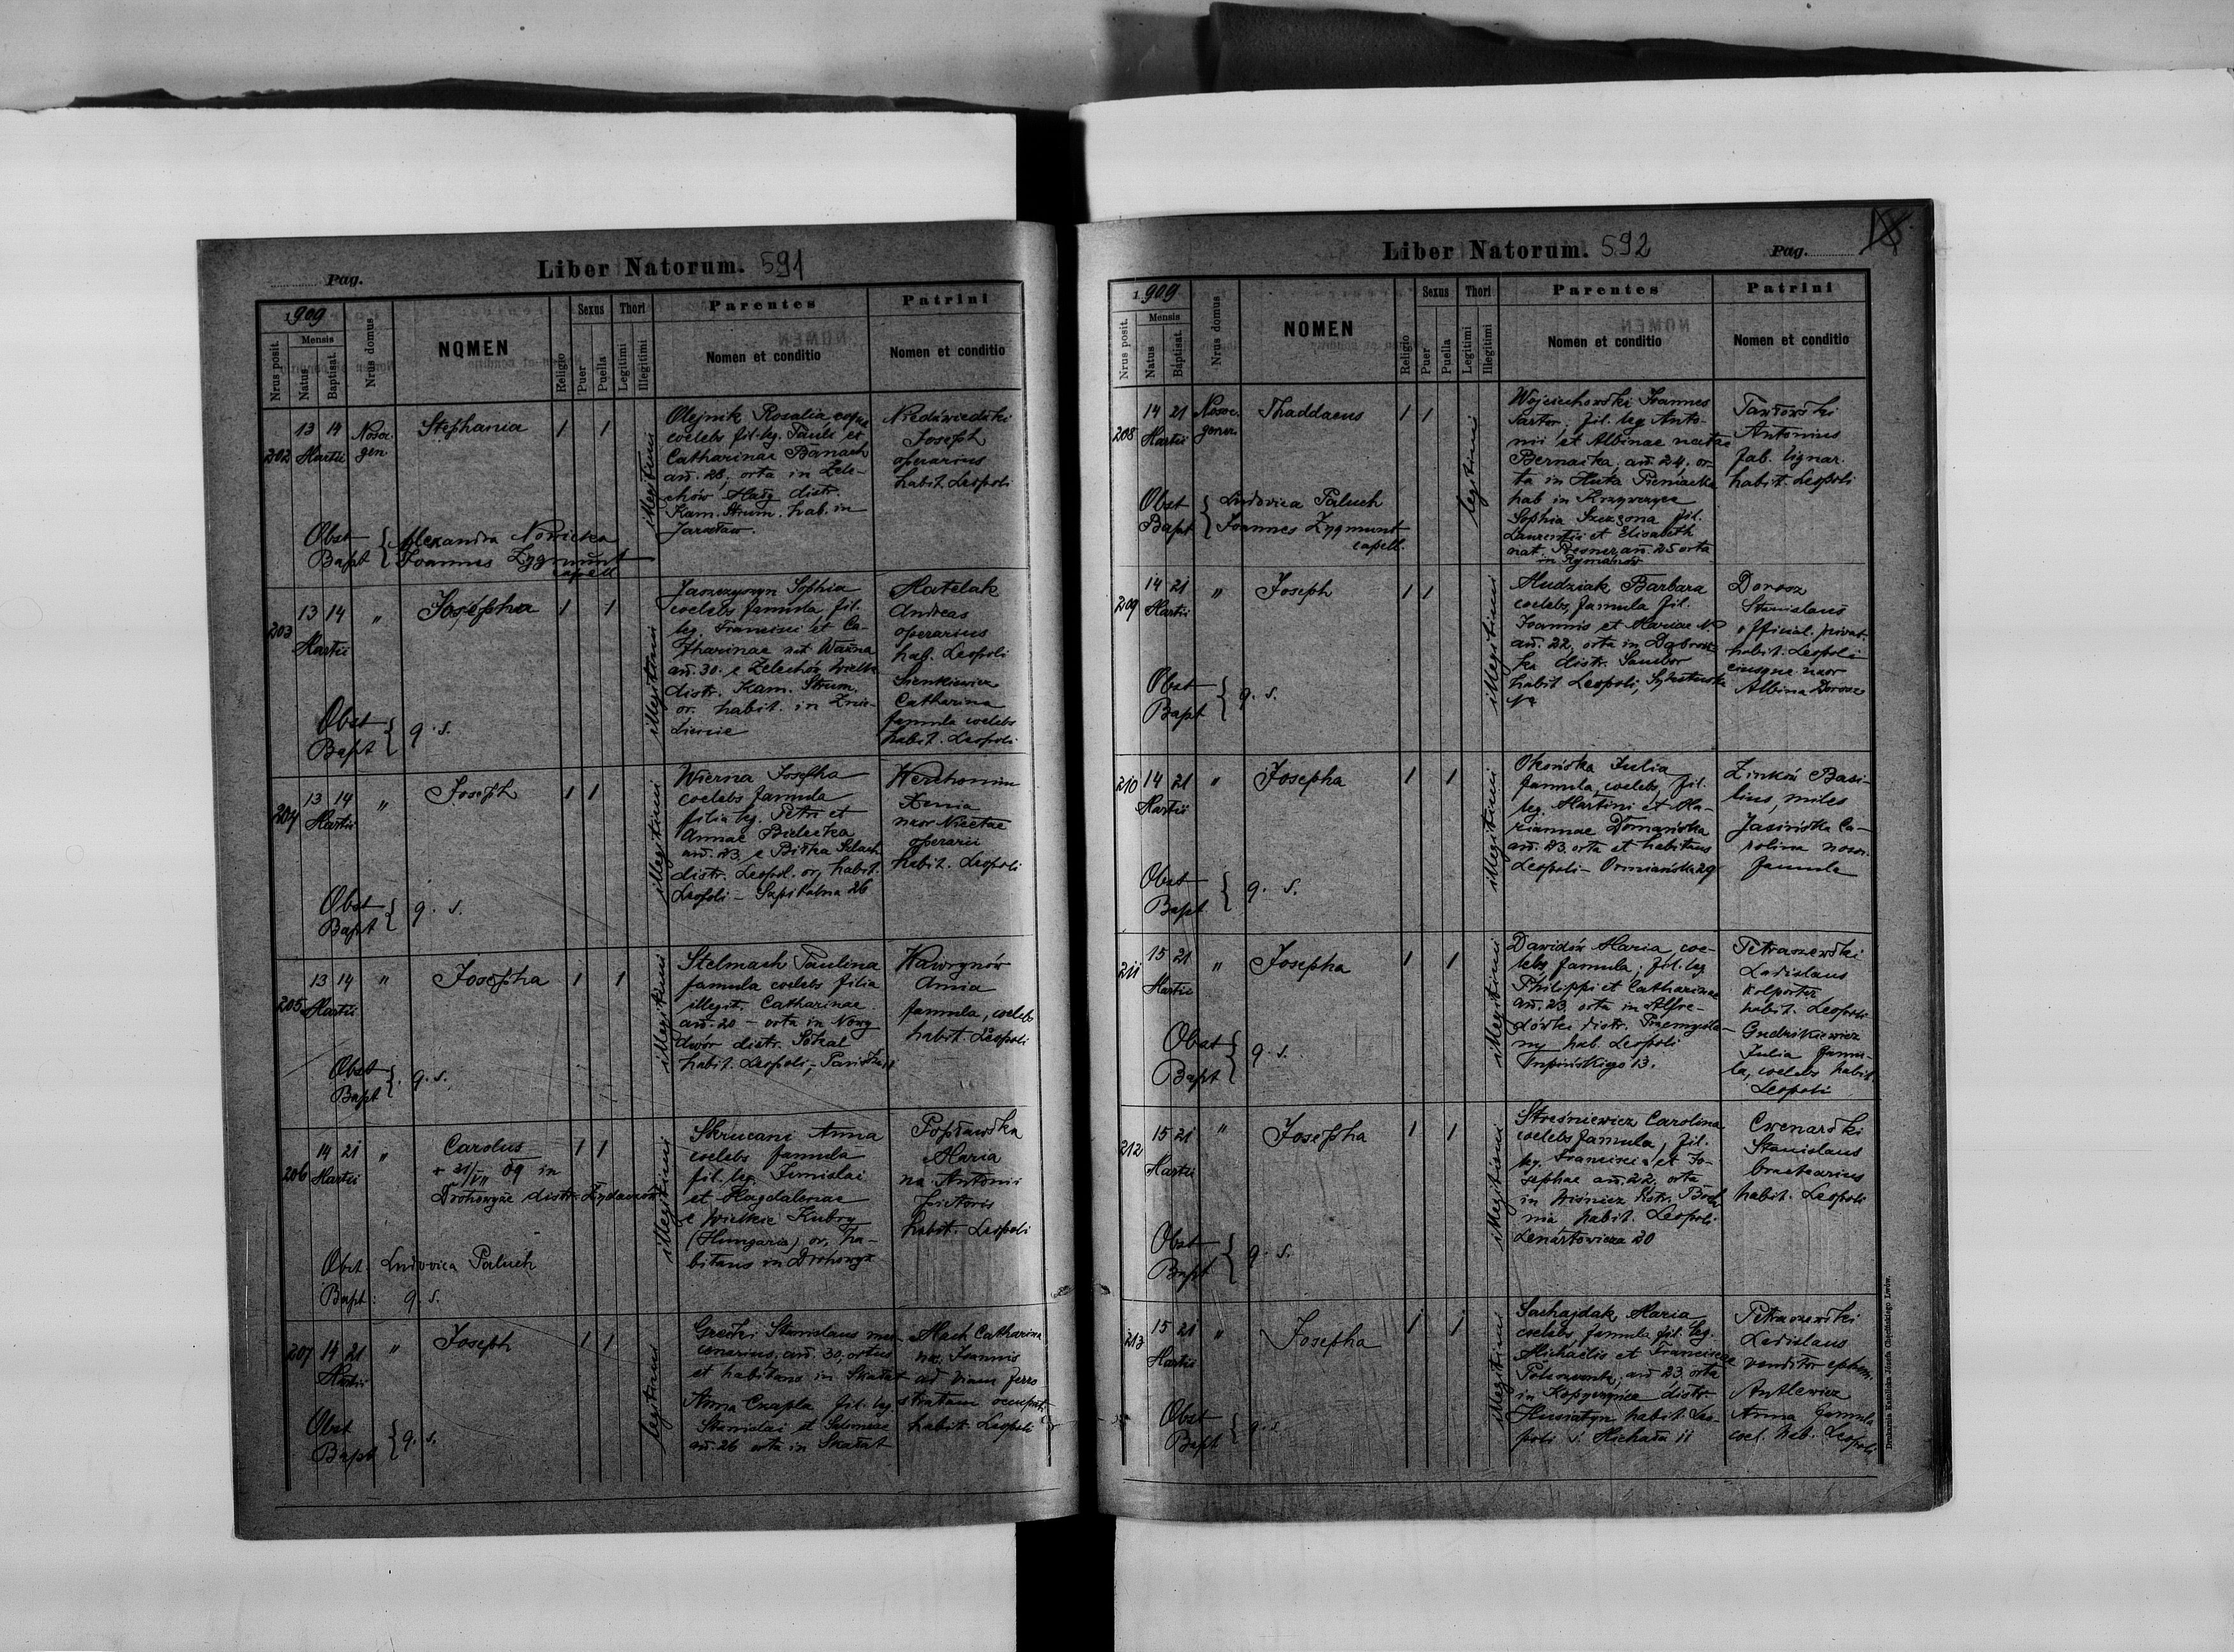 Pag.
Liber Natorum. 591
1909
Nrus posit.
Mensis
Natus
Baptisat.
Nrus domus
NOMEN
Religio
Sexus
Puer
Puella
Thori
Legitimi
Illegitimi
Parentes
Nomen et conditio
Patrini
Nomen et conditio
202
13 14
Martii
Nosoc.
gen
Stephania
1 1
illegitimi
Olejnik Rosalia
coelebs fil. leg. Pauli et
Catharinae Banach
an. 28, orta in Żele-
chów distr.
Kam. Strum. hab. in
Jarosław.
Niedźwiedzki
Joseph
operarius
habit. Leopoli
Obst
Bapt
Alexandra Nowicka
Joannes Zygmunt
capell
203
13 14
Martii
"
Josepha
1 1
illegitimi
Jaszczyszyn Sophia
coelebs famula fil.
leg. Francisci et Ca-
tharinae nat. Warna
an. 30. e Żelechów wielki
distr. Kam. Strum.
or. habit. in Znie-
sienie
Matelak
Andreas
operarius
hab. Leopoli
Sienkiewicz
Catharina
famula coelebs
habit. Leopoli
Obst
Bapt
q. s.
204
13 14
Martii
"
Joseph
1 1
illegitimi
Wierna Josepha
coelebs famula
filia leg. Petri et
Annae Bielecka
an. 23, e Biłka Szlach
distr. Leopol. or. habit.
Leopoli - Szpitalna 26
Xenia
uxor Nicetae
operarii
habit. Leopoli
Obst
Bapt
q. s.
205
13 14
Martii
"
Josepha
1 1
illegitimi
Stelmach Paulina
famula coelebs filia
illegit. Catharinae
an. 20 - orta in Nowy
dwór distr. Sokal
habit. Leopoli,
Wawrynów
Anna
famula, coelebs
habit. Leopoli
Obst
Bapt
q. s.
206
14 21
Martii
"
Carolus
+ 31/VII 09 in
Drohowyże distr. Żydaczów
1 1
illegitimi
Skrucani Anna
coelebs famula
fil. leg.
et Magdalenae
e Wielkie Kubry
(Hungaria) or. ha-
bitans in Drohowyż
Popławska
Maria
Antonii
pictoris
habit. Leopoli
Obst: Ludovica Paluch
Bapt: q. s.
207
14 21
Martii
"
Joseph
1 1
legitimi
Grecki Stanislaus mer-
cenarius, an. 30, ortus
et habitans in Skałat
Anna Czapla fil. leg.
Stanislai et Salomeae
an. 26 orta in Skałat
Mach Catharina
Joannis
ad viam ferro
stratam occupat.
habit. Leopoli
Obst
Bapt
q. s.
Liber Natorum. 592
Pag.
1909
Nrus posit.
Mensis
Natus
Baptisat.
Nrus domus
NOMEN
Religio
Sexus
Puer
Puella
Thori
Legitimi
Illegitimi
Parentes
Nomen et conditio
Patrini
Nomen et conditio
208
14 21
Martii
Nosoc.
gener.
Thaddaeus
1 1
legitimi
Wojciechowski Joannes
Sartor, fil. leg. Anto-
nii et Albinae natae
Bernacka, an. 24, or-
ta in Huta Pieniacka
hab in Krzywczyce
Sophia fil.
Laurentii et Elisabeth
nat. an. 25 orta
in Rymanów
Pawłowski
Antonius
fab. lignar.
habit. Leopoli
Obst
Bapt
Ludovica Paluch
Joannes Zygmunt
capell.
209
14 21
Martii
"
Joseph
1 1
illegitimi
Hudziak Barbara
coelebs, famula fil.
Joannis et Mariae N.
an. 22, orta in Dąbrow-
ka distr. Sambor
habit Leopoli, Sykstuska
Dorosz
Stanislaus
official. privat.
habit. Leopoli
eiusque uxor
Albina Dorosz
Obst
Bapt
q. s.
210
14 21
Martii
"
Josepha
1 1
illegitimi
Okońska Julia
famula, coelebs, fil.
leg. Martini et Ma-
riannae Domańska
an. 23. orta et habitans
Leopoli - Ormiańska 29
Zinków Basi-
lius, miles
Jasińska Ca-
rolina nosoc.
famula
Obst
Bapt
q. s.
211
15 21
Martii
"
Josepha
1 1
illegitimi
Dawidów Maria, coe-
lebs, famula, fil. leg.
Philippi et Catharinae
an. 23, orta in Alfre-
dówka distr. Przemyśla-
ny hab. Leopoli
Tupińskiego 13.
Petraszewski
Ladislaus
kolporter
habit. Leopoli
Julia famu-
la, coelebs habit.
Leopoli
Obst
Bapt
q. s.
212
15 21
Martii
"
Josepha
1 1
illegitimi
Streśniewicz Carolina
coelebs famula, fil.
leg. Francisci et Jo-
sephae an. 22, orta
in Wiśnicz distr. Boch
nia habit. Leopoli
Lenartowicza 20
Cwenarski
Stanislaus
bractearius
habit. Leopoli
Obst
Bapt
q. s.
213
15 21
Martii
"
Josepha
1 1
illegitimi
Sachajdak Maria
coelebs, famula fil. leg.
Michaelis et Franciscae
an 23, orta
in Kopyczyńce distr.
Husiatyn habit. Leo-
poli S. Michała 11
Petraszewski
Ladislaus
venditor ephem.
Antlewicz
Anna famula
coel. hab. Leopoli
Obst
Bapt
q. s.
Drukarnia Katolicka Józefa Chęcińskiego Lwów.